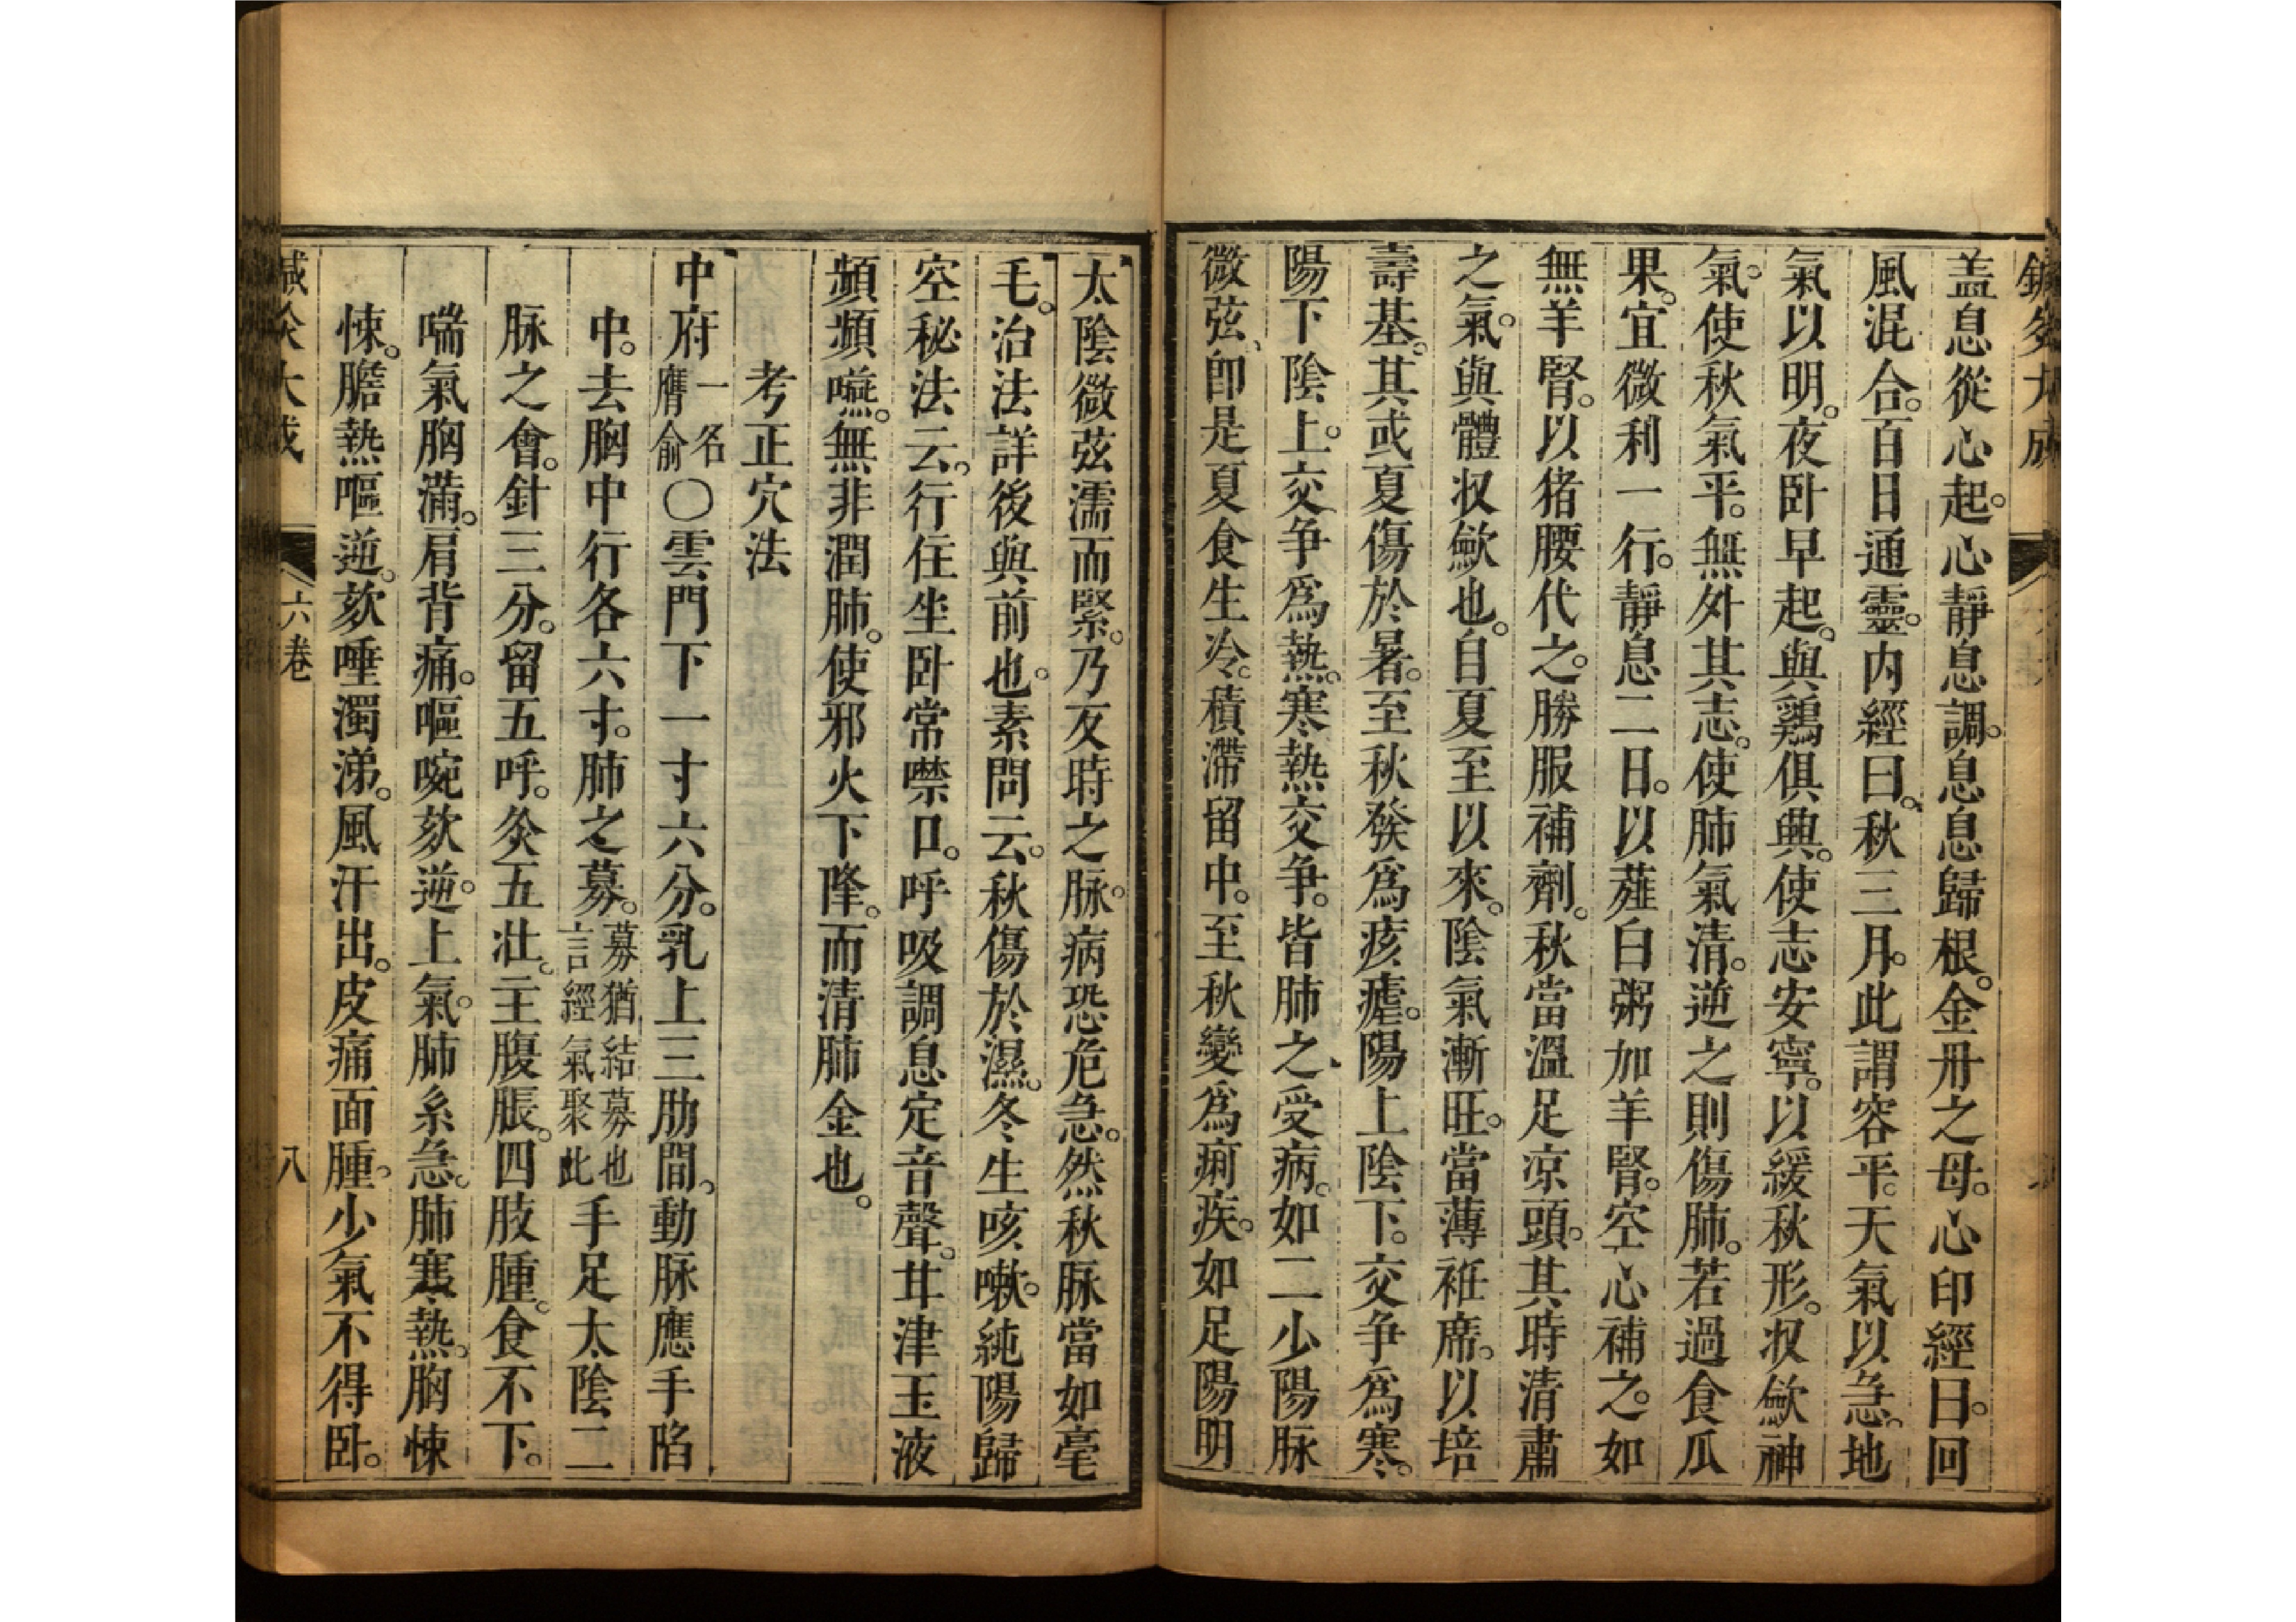 盖息從心起。心靜息調。息息歸根。金丹之母。心印經曰。回
風混合。百日通靈。内經曰。秋三月。此謂容平。天氣以急。地
氣以明。夜卧早起。與鷄俱興。使志安寧。以緩秋形。収歛神
氣。使秋氣平。無外其志。使肺氣清。逆之則傷肺。若過食瓜
果。宜微利一行。靜息二日。以薤白粥加羊腎。空心補之。如
無羊腎。以猪腰代之。勝服補劑。秋當溫足凉頭。其時清肅
之氣。與體収歛也。自夏至以來。陰氣漸旺。當薄袵席。以培
壽基。其或夏傷於暑。至秋發爲痎瘧。陽上陰下。交争爲寒。
陽下陰上。交争爲熱。寒熱交争。皆肺之受病。如二少陽脉
微弦、卽是夏食生冷。積滯留中。至秋變爲痢疾。如足陽明
太陰微弦濡而緊。乃反時之脉。病恐危急。然秋脉當如毫
毛。治法詳後與前也。素問云。秋傷於濕。冬生咳嗽。純陽歸
空秘法云。行住坐卧常噤口。呼吸調息定音聲。甘津玉液
頻頻嚥。無非潤肺。使邪火下降。而清肺金也。
考正穴法
中府一名膺俞〇雲門下一寸六分。乳上三肋間。動脉應手陷
中。去胸中行各六寸。肺之募。募猶結募也言經氣聚此手足太陰二
脉之會。針三分。留五呼。灸五壯。主腹脹。四肢腫。食不下。
喘氣胸滿。肩背痛。嘔啘欬逆。上氣。肺系急。肺寒熱。胸悚
悚。膽熱嘔逆。欬唾濁涕。風汗出。皮痛面腫。少氣不得卧。
鍼灸大成
六卷
八